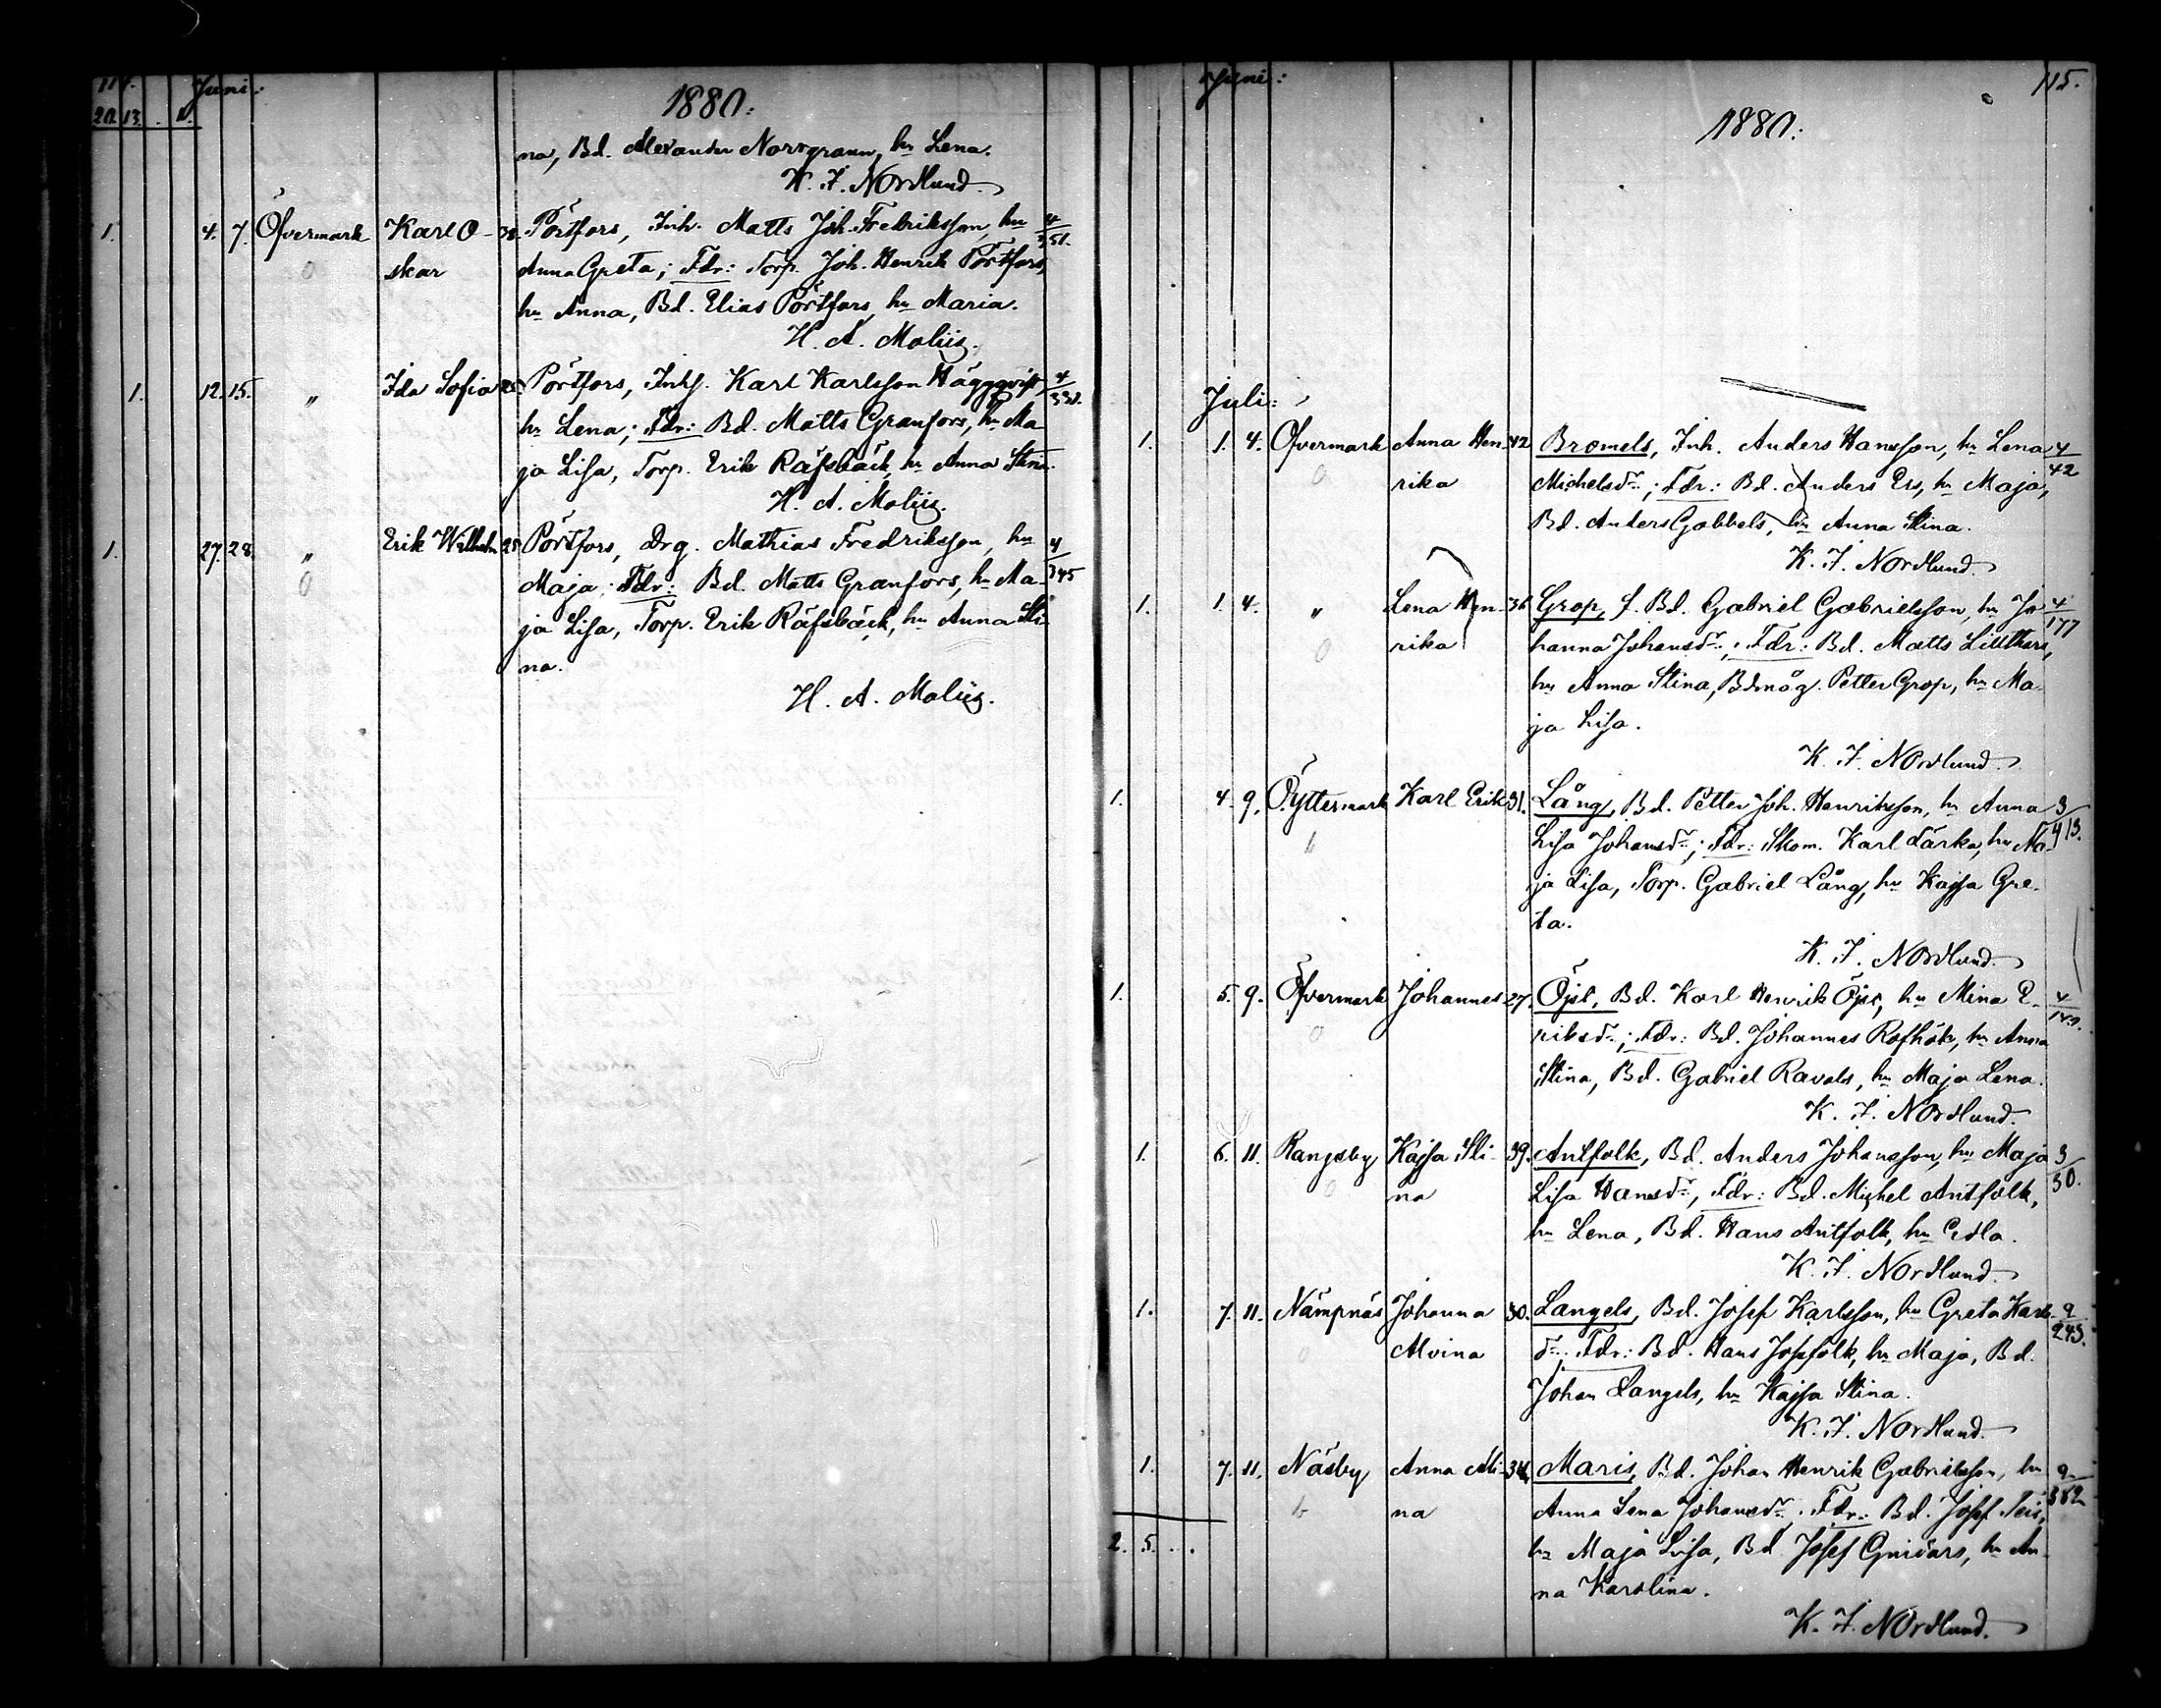 114. Juni:
20. 13. . 1.
1880.
na, Bd. Alexander Norrgrann, hu Lena.
K. F. Nordlund.
1. 4. 7. Öfvermark Karl O- 38. Pörtfors, Inh. Matts Joh. Fredriksson, hu 4/351.
skar Anna Greta; Fdr: Torp. Joh. Henrik Pörtfors,
hu Anna, Bd. Elias Pörtfors, hu Maria.
H. A. Moliis.
1. 12. 15. " Ida Sofia 25 Pörtfors, Inhs. Karl Karlsson Häggqvist,
hu Lena; Fdr: Bd. Matts Granfors, hu Ma
ja Lisa, Torp. Erik Räfsbäck, hu Anna Stina.
H. A. Moliis.
1. 27. 28. " Erik Wilhelm 25 Pörtfors, Drg. Mathias Fredriksson, hu 4/345
Maja; Fdr: Bd. Matts Granfors, hu Ma-
ja Lisa, Torp. Erik Räfsbäck, hu Anna Sti-
na.
H. A. Moliis.
Juni: 115.
1880.
Juli:
1. 1. 4. Öfvermark Anna Hen- 42 Bromels, Inh. Anders Hansson, hu Lena 4/42
rika Michelsdr; Fdr: Bd. Anders Ers, hu Maja,
Bd. Anders Gabbels, hu Anna Stina.
K. F. Nordlund.
1. 1. 4. " Lena Hen- 36 Grop, f. Bd. Gabriel Gabrielsson, hu Jo 4/177
rika hanna Johansdr; Fdr: Bd. Matts Lillthors,
hu Anna Stina, Bdmåg. Petter Grop, hu Ma-
ja Lisa.
K. F. Nordlund.
1. 4. 9. Yttermark Karl Erik 31. Lång, Bd. Petter Joh. Henriksson, hu Anna 3/413.
Lisa Johansdr; Fdr: Skom. Karl Lärka, hu Ma-
ja Lisa, Torp. Gabriel Lång, hu Kajsa Gre-
ta.
K. F. Nordlund.
1. 5. 9. Öfvermark Johannes 27. Öjst, Bd. Karl Henrik Öjst, hu Mina E-
riksdr; Fdr: Bd. Johannes Rofhök, hu Anna
Stina, Bd. Gabriel Ravals, hu Maja Lena.
K. F. Nordlund.
1. 6. 11. Rangsby Kajsa Sti- 39. Antfolk, Bd. Anders Johansson, hu Maja 3/30.
na Lisa Hansdr, Fdr: Bd. Michel Antfolk,
hu Lena, Bd. Hans Antfolk, hu Edla.
K. F. Nordlund.
1. 7. 11. Nämpnäs Johanna 30. Langels, Bd. Josef Karlsson, hu Greta Karls- 2/243.
Alvina dr. Fdr: Bd. Hans Josfolk, hu Maja, Bd.
Johan Langels, hu Kajsa Stina.
K. F. Nordlund.
1. 7. 11. Näsby Anna Ali- 34 Maris, Bd. Johan Henrik Gabrielsson, hu 2/382
na Anna Lena Johansdr. Fdr: Bd. Josef Teis,
2. 5. . . hu Maja Lisa, Bd. Josef Gnidars, hu An-
na Karolina.
K. F. Nordlund.